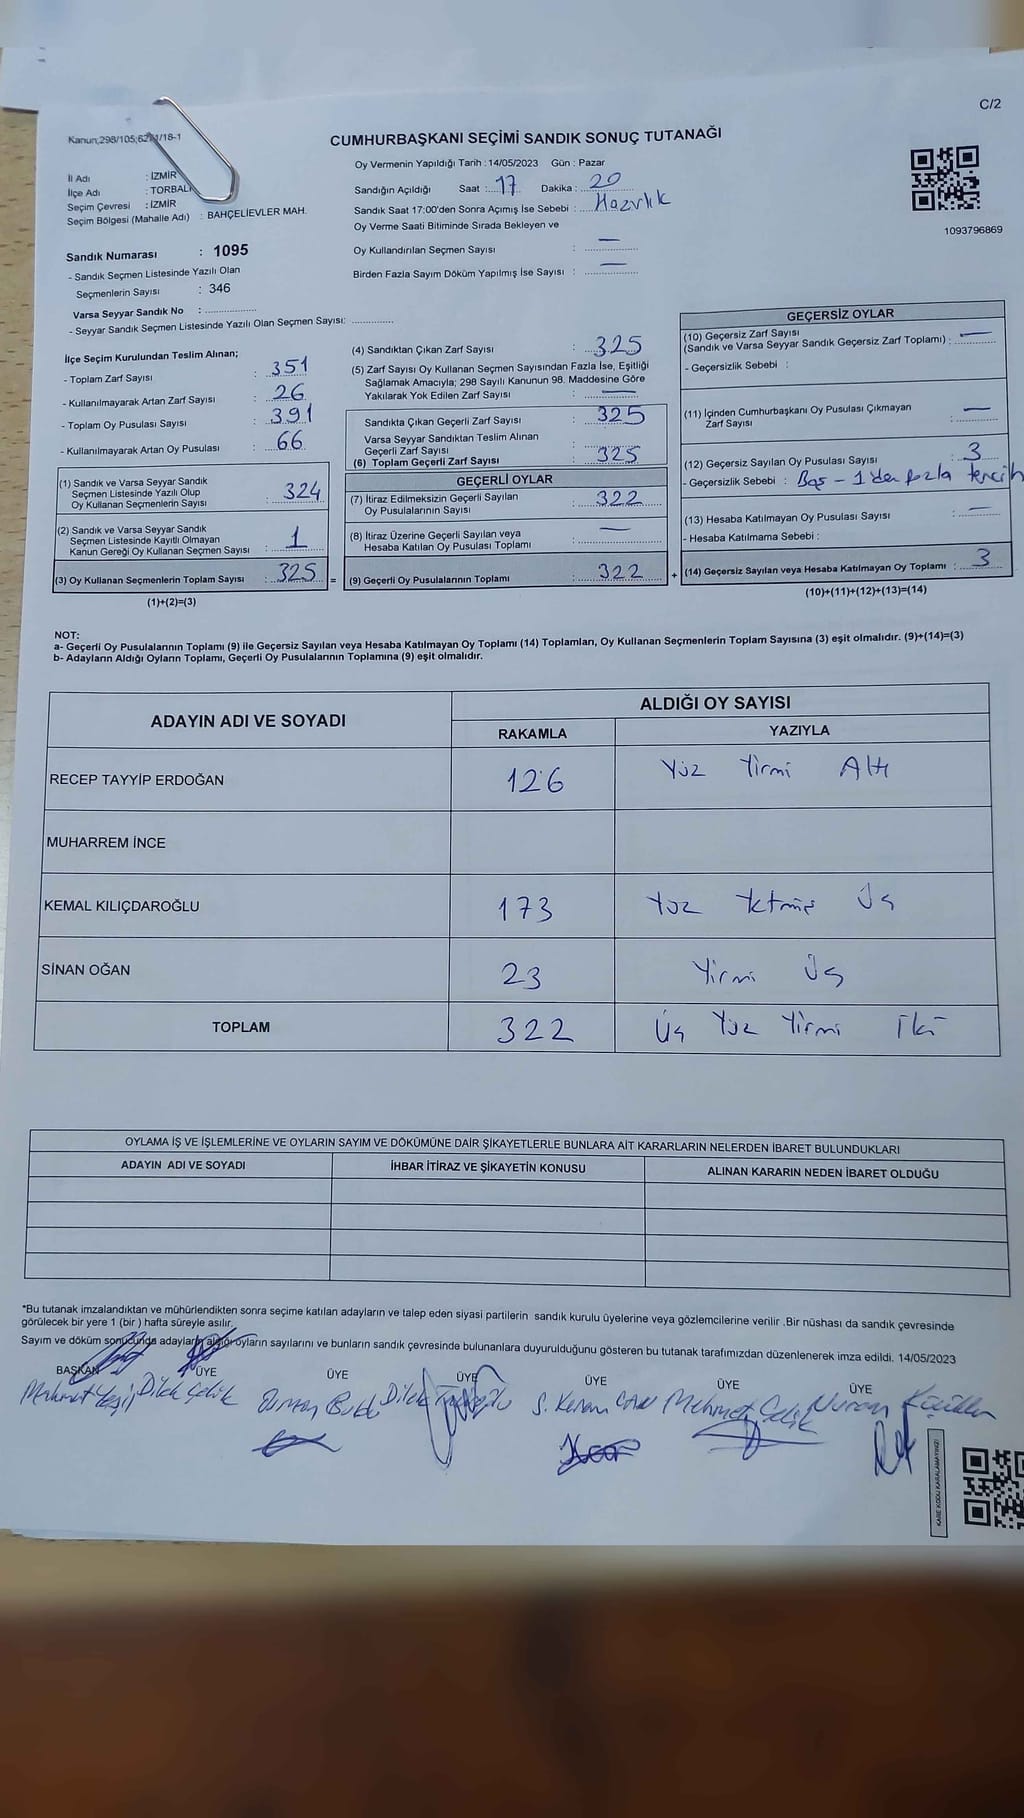 C/2
Kanun;298/105;62 1/18-1
CUMHURBAŞKANI SEÇİMİ SANDIK SONUÇ TUTANAĞI
Oy Vermenin Yapıldığı Tarih : 14/05/2023 Gün : Pazar
İl Adı : İZMİR
İlçe Adı : TORBALI
Seçim Çevresi : İZMİR
Seçim Bölgesi (Mahalle Adı) : BAHÇELİEVLER MAH.
Sandığın Açıldığı Saat : 17 Dakika : 20
Sandık Saat 17:00'den Sonra Açımış İse Sebebi : Hazırlık
Oy Verme Saati Bitiminde Sırada Bekleyen ve
Oy Kullandırılan Seçmen Sayısı : —
Birden Fazla Sayım Döküm Yapılmış İse Sayısı : —
1093796869
Sandık Numarası : 1095
- Sandık Seçmen Listesinde Yazılı Olan
Seçmenlerin Sayısı : 346
Varsa Seyyar Sandık No : ................
- Seyyar Sandık Seçmen Listesinde Yazılı Olan Seçmen Sayısı: .............
İlçe Seçim Kurulundan Teslim Alınan;
- Toplam Zarf Sayısı : 351
- Kullanılmayarak Artan Zarf Sayısı : 26
- Toplam Oy Pusulası Sayısı : 391
- Kullanılmayarak Artan Oy Pusulası : 66
(1) Sandık ve Varsa Seyyar Sandık
Seçmen Listesinde Yazılı Olup
Oy Kullanan Seçmenlerin Sayısı : 324
(2) Sandık ve Varsa Seyyar Sandık
Seçmen Listesinde Kayıtlı Olmayan
Kanun Gereği Oy Kullanan Seçmen Sayısı : 1
(3) Oy Kullanan Seçmenlerin Toplam Sayısı : 325 =
(1)+(2)=(3)
(4) Sandıktan Çıkan Zarf Sayısı : 325
(5) Zarf Sayısı Oy Kullanan Seçmen Sayısından Fazla İse, Eşitliği
Sağlamak Amacıyla; 298 Sayılı Kanunun 98. Maddesine Göre
Yakılarak Yok Edilen Zarf Sayısı : —
Sandıkta Çıkan Geçerli Zarf Sayısı : 325
Varsa Seyyar Sandıktan Teslim Alınan
Geçerli Zarf Sayısı :
(6) Toplam Geçerli Zarf Sayısı : 325
GEÇERLİ OYLAR
(7) İtiraz Edilmeksizin Geçerli Sayılan
Oy Pusulalarının Sayısı : 322
(8) İtiraz Üzerine Geçerli Sayılan veya
Hesaba Katılan Oy Pusulası Toplamı : —
(9) Geçerli Oy Pusulalarının Toplamı : 322 +
GEÇERSİZ OYLAR
(10) Geçersiz Zarf Sayısı
(Sandık ve Varsa Seyyar Sandık Geçersiz Zarf Toplamı) : —
- Geçersizlik Sebebi :
(11) İçinden Cumhurbaşkanı Oy Pusulası Çıkmayan
Zarf Sayısı : —
(12) Geçersiz Sayılan Oy Pusulası Sayısı : 3
- Geçersizlik Sebebi : Boş - 1'den fazla tercih
(13) Hesaba Katılmayan Oy Pusulası Sayısı : —
- Hesaba Katılmama Sebebi :
(14) Geçersiz Sayılan veya Hesaba Katılmayan Oy Toplamı : 3
(10)+(11)+(12)+(13)=(14)
NOT:
a- Geçerli Oy Pusulalarının Toplamı (9) ile Geçersiz Sayılan veya Hesaba Katılmayan Oy Toplamı (14) Toplamları, Oy Kullanan Seçmenlerin Toplam Sayısına (3) eşit olmalıdır. (9)+(14)=(3)
b- Adayların Aldığı Oyların Toplamı, Geçerli Oy Pusulalarının Toplamına (9) eşit olmalıdır.
ADAYIN ADI VE SOYADI
ALDIĞI OY SAYISI
RAKAMLA YAZIYLA
RECEP TAYYİP ERDOĞAN 126 Yüz Yirmi Altı
MUHARREM İNCE
KEMAL KILIÇDAROĞLU 173 Yüz Yetmiş Üç
SİNAN OĞAN 23 Yirmi Üç
TOPLAM 322 Üç Yüz Yirmi İki
OYLAMA İŞ VE İŞLEMLERİNE VE OYLARIN SAYIM VE DÖKÜMÜNE DAİR ŞİKAYETLERLE BUNLARA AİT KARARLARIN NELERDEN İBARET BULUNDUKLARI
ADAYIN ADI VE SOYADI İHBAR İTİRAZ VE ŞİKAYETİN KONUSU ALINAN KARARIN NEDEN İBARET OLDUĞU
*Bu tutanak imzalandıktan ve mühürlendikten sonra seçime katılan adayların ve talep eden siyasi partilerin sandık kurulu üyelerine veya gözlemcilerine verilir .Bir nüshası da sandık çevresinde
görülecek bir yere 1 (bir ) hafta süreyle asılır.
Sayım ve döküm sonucunda adayların aldığı oyların sayılarını ve bunların sandık çevresinde bulunanlara duyurulduğunu gösteren bu tutanak tarafımızdan düzenlenerek imza edildi. 14/05/2023
BAŞKAN ÜYE ÜYE ÜYE ÜYE ÜYE ÜYE
Mehmet Yeşil Dilek Çelik Dilek S. Kerem CAN Mehmet Çelik Nuran
KARE KODU KARALAMAYINIZ!